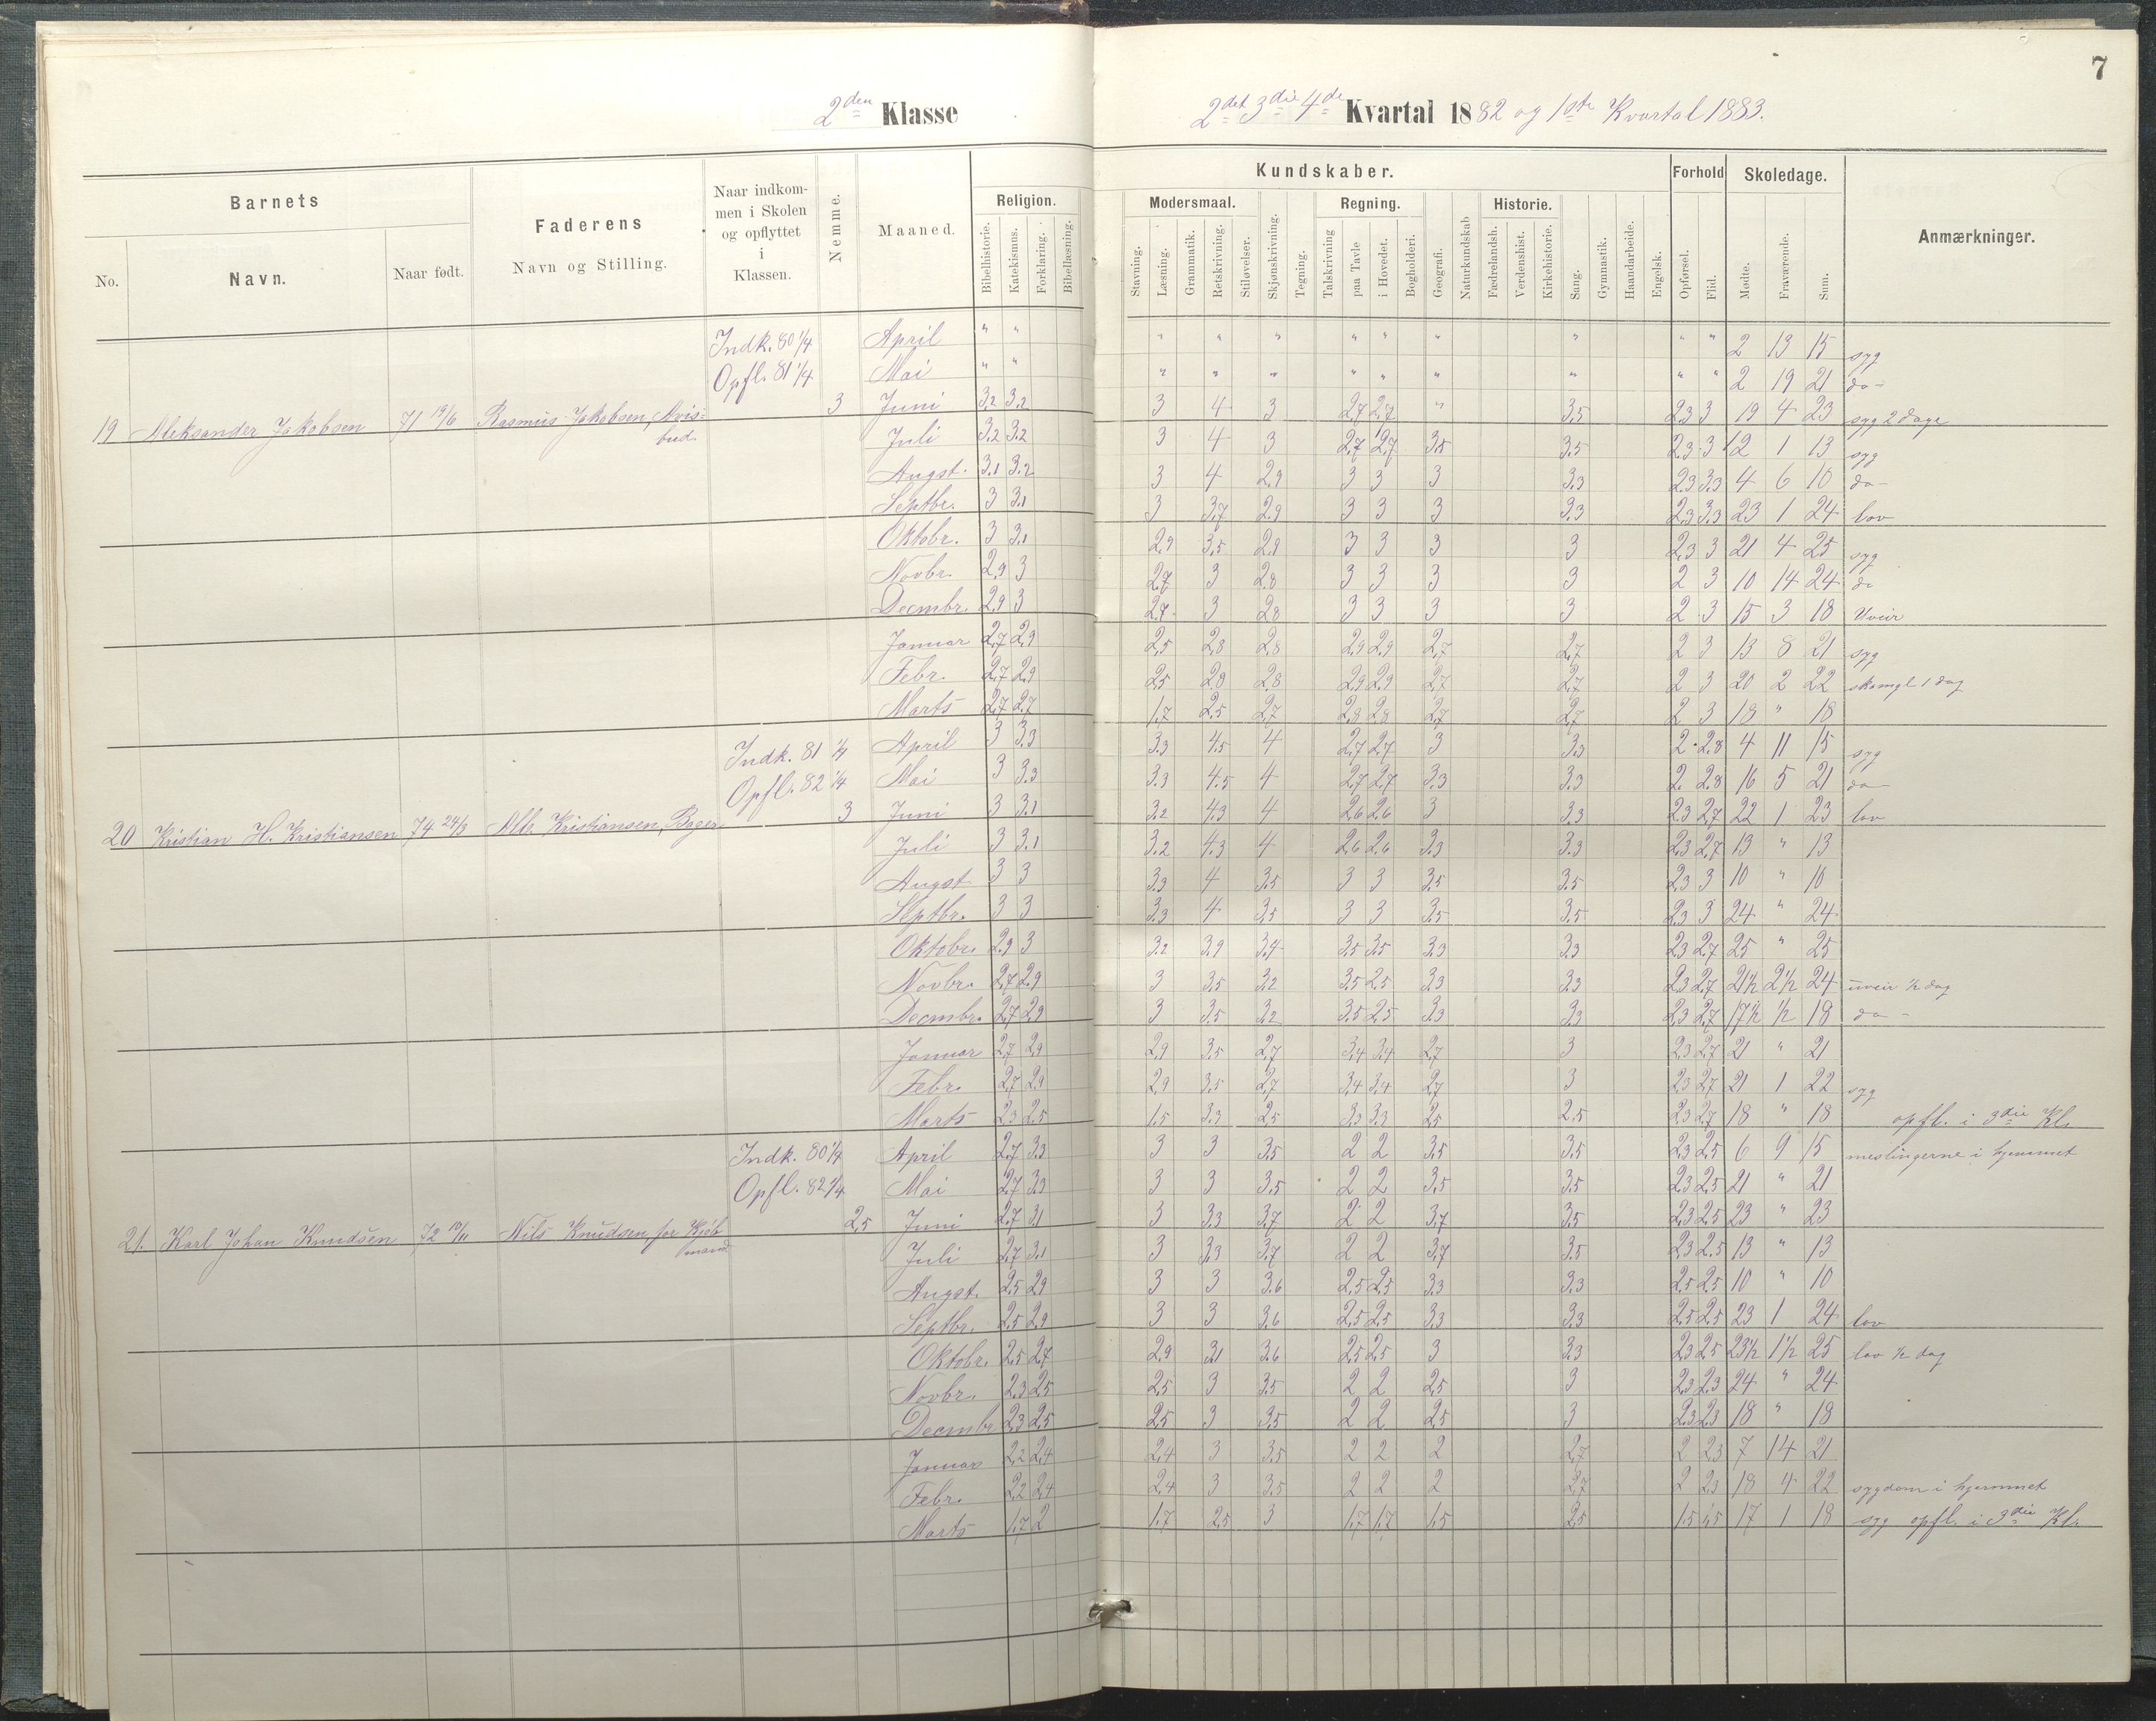 7
2den Klasse
2det 3die 4de Kvartal 1882 og 1ste Kvartal 1883.
Barnets
Faderens
Naar indkom-
men i Skolen
og opflyttet
i
Klassen.
Nemme.
Maaned.
Religion.
Kundskaber.
Forhold
Skoledage.
Anmærkninger.
Modersmaal.
Regning.
Historie.
No.
Navn.
Naar født.
Navn og Stilling.
Bibelhistorie. Katekismus. Forklaring. Bibellæsning.
Stavning. Læsning. Grammatik. Retskrivning. Stiløvelser. Skjønskrivning. Tegning. Talskrivning paa Tavle i Hovedet. Bogholderi. Geografi. Naturkundskab Fædrelandsh. Verdenshist. Kirkehistorie. Sang. Gymnastik. Haandarbeide. Engelsk. Opførsel. Flid. Mødte. Fraværende. Sum.
Indk. 80 1/4 April " " " " " " " " " " " 2 13 15 syg
Opfl. 81 1/4 Mai " " " " " " " " " " " 2 19 21 do-
19 Aleksander Jakobsen 71 19/6 Rasmus Jakobsen, Avis= 3 Juni 3,2 3,2 3 4 3 2,7 2,7 " 3,5 2,3 3 19 4 23 syg 2 dage
bud. Juli 3,2 3,2 3 4 3 2,7 2,7 3,5 3,5 2,3 3 12 1 13 syg
Augst. 3,1 3,2 3 4 2,9 3 3 3 3,3 2,3 3,3 4 6 10 do-
Septbr. 3 3,1 3 3,7 2,9 3 3 3 3,3 2,3 3,3 23 1 24 lov
Oktobr. 3 3,1 2,9 3,5 2,9 3 3 3 3 2,3 3 21 4 25 syg
Novbr. 2,9 3 2,7 3 2,8 3 3 3 3 2 3 10 14 24 do
Decmbr. 2,9 3 2,7 3 2,8 3 3 3 3 2 3 15 3 18 Uveir
Januar 2,7 2,9 2,5 2,8 2,8 2,9 2,9 2,7 2,7 2 3 13 8 21 syg
Febr. 2,7 2,9 2,5 2,8 2,8 2,9 2,9 2,7 2,7 2 3 20 2 22 skomgl 1 dag
Marts 2,7 2,7 1,7 2,5 2,7 2,8 2,8 2,7 2,7 2 3 18 " 18
Indk. 81 1/4 April 3 3,3 3,3 4,5 4 2,7 2,7 3 3,3 2 2,8 4 11 15 syg
Opfl. 82 1/4 Mai 3 3,3 3,3 4,5 4 2,7 2,7 3,3 3,3 2 2,8 16 5 21 do-
20 Kristian H. Kristiansen 74 24/3 Alb. Kristiansen, Bager 3 Juni 3 3,1 3,2 4,3 4 2,6 2,6 3 3,3 2,3 2,7 22 1 23 lov
Juli 3 3,1 3,2 4,3 4 2,6 2,6 3,3 3,3 2,3 2,7 13 " 13
Augst 3 3 3,3 4 3,5 3 3 3,5 3,5 2,3 3 10 " 10
Septbr. 3 3 3,3 4 3,5 3 3 3,5 3,5 2,3 3 24 " 24
Oktobr. 2,9 3 3,2 3,9 3,4 3,5 3,5 3,3 3,3 2,3 2,7 25 " 25
Novbr. 2,7 2,9 3 3,5 3,2 3,5 2,5 3,3 3,3 2,3 2,7 21 1/2 2 1/2 24 uveir 1/2 dag
Decmbr. 2,7 2,9 3 3,5 3,2 3,5 2,5 3,3 3,3 2,3 2,7 17 1/2 1/2 18 do -
Januar 2,7 2,9 2,9 3,5 2,7 3,4 3,4 2,7 3 2,3 2,7 21 " 21
Febr. 2,7 2,9 2,9 3,5 2,7 3,4 3,4 2,7 3 2,3 2,7 21 1 22 syg
Marts 2,3 2,5 1,5 3,3 2,5 3,3 3,3 2,5 2,5 2,3 2,7 18 " 18 opfl. i 3die Kl.
Indk. 80 1/4 April 2,7 3,3 3 3 3,5 2 2 3,5 3,5 2,3 2,5 6 9 15 meslingerne i hjemmet
Opfl. 82 1/4 Mai 2,7 3,3 3 3 3,5 2 2 3,5 3,5 2,3 2,5 21 " 21
21. Karl Johan Knudsen 72 /11 Nils Knudsen, for Kjøb 2,5 Juni 2,7 3,1 3 3,3 3,7 2 2 3,7 3,5 2,3 2,5 23 " 23
mand Juli 2,7 3,1 3 3,3 3,7 2 2 3,7 3,5 2,3 2,5 13 " 13
Augst. 2,5 2,9 3 3 3,6 2,5 2,5 3,3 3,3 2,5 2,5 10 " 10
Septbr. 2,5 2,9 3 3 3,6 2,5 2,5 3,3 3,3 2,5 2,5 23 1 24 lov
Oktobr. 2,5 2,7 2,9 3,1 3,6 2,5 2,5 3 3,3 2,3 2,5 23 1/2 1 1/2 25 lov 1/2 dag
Novbr. 2,3 2,5 2,5 3 3,5 2 2 2,5 3 2,3 2,3 24 " 24
Decmbr 2,3 2,5 2,5 3 3,5 2 2 2,5 3 2,3 2,3 18 " 18
Januar 2,2 2,4 2,4 3 3,5 2 2 2 2,7 2 2,3 7 14 21
Febr. 2,2 2,4 2,4 3 3,5 2 2 2 2,7 2 2,3 18 4 22 sygdom i hjemmet
Marts 1,7 2 1,7 2,5 3 1,7 1,7 1,5 2,5 1,5 1,5 17 1 18 syg opfl. i 3die Kl.